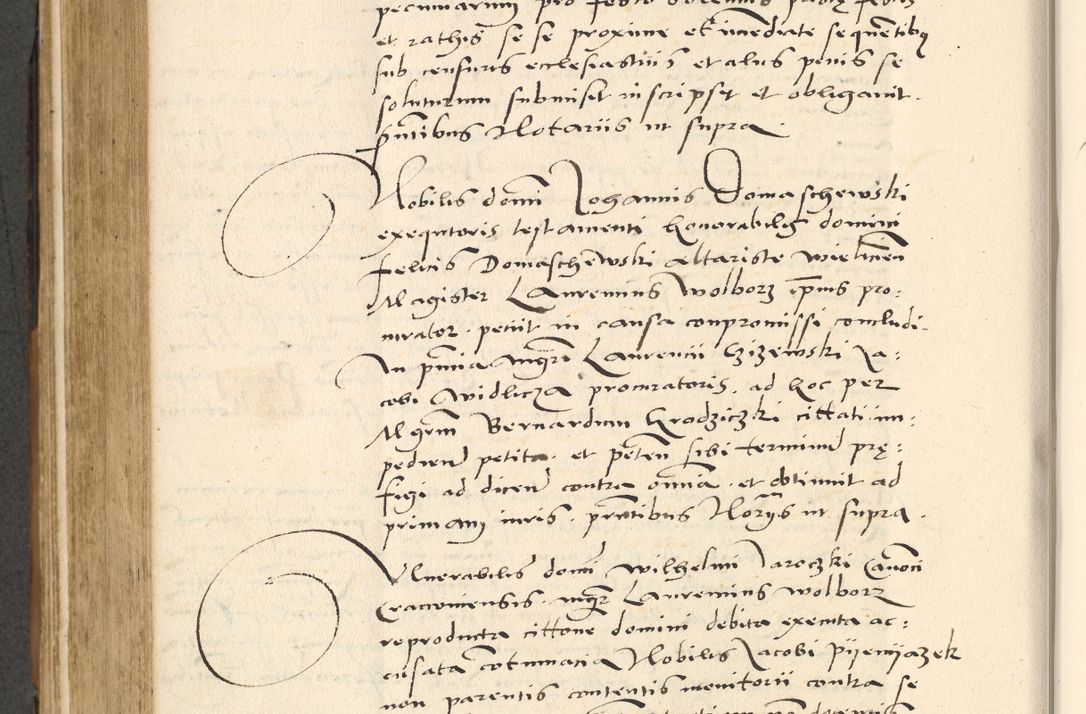 pecuniarum pro festo
et rathis se se proxime et īmediate sequētibus
sub censuris ecclesiasticis et aliis penis se
soluturum submisit inscripsit et obligavit.
pn̄tibus Notariis ut supra.
Nobilis domī Johannis Domaschewski
exequtoris testamenti honorabilis domini
felicis Domaschewski altariste wielicień
Magister Laurentius Wolborz ip̄ius pro:
curator. petiit in causa compromissi concludi.
In pn̄tia mgri Laurentii Czizewski Ja:
cobi Widlicza procuratoris. ad hoc per
Mgrm̄ Bernardum Grodziczki cittati im:
pedień petita. et peteń sibi terminū prę:
figi ad diceń contra om̄ia. et obtinuit ad
primam iuris. pn̄tibus Nor̄iis ut supra.
Venerabilis domī Wilhelmi Jaroczki Canoci
Cracoviensis. mgr Laurentius Wolborz
reproducta cittone domini debita executa ac:
cusata cōtumacia Nobilis Jacobi Pijenijazek
non parentis contentis monitorii contra se